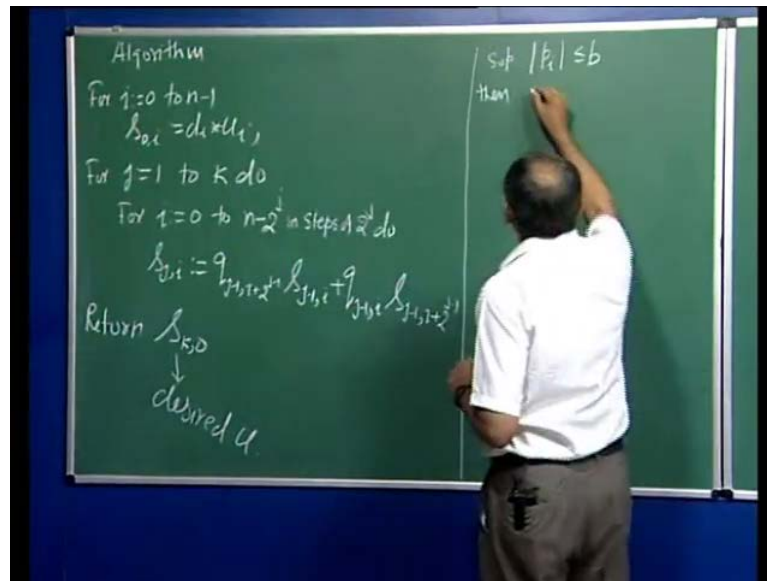 Algorithm
For i:=0 to n-1
s_{0,i} = d_i * u_i,
For j=1 to k do
For i=0 to n-2^j in steps of 2^j do
s_{j,i} := q_{j-1,i+2^{j-1}} s_{j-1,i} + q_{j-1,i} s_{j-1,i+2^{j-1}}
Return s_{k,0}
↓
desired u.
Sup |p_i| ≤ b
then